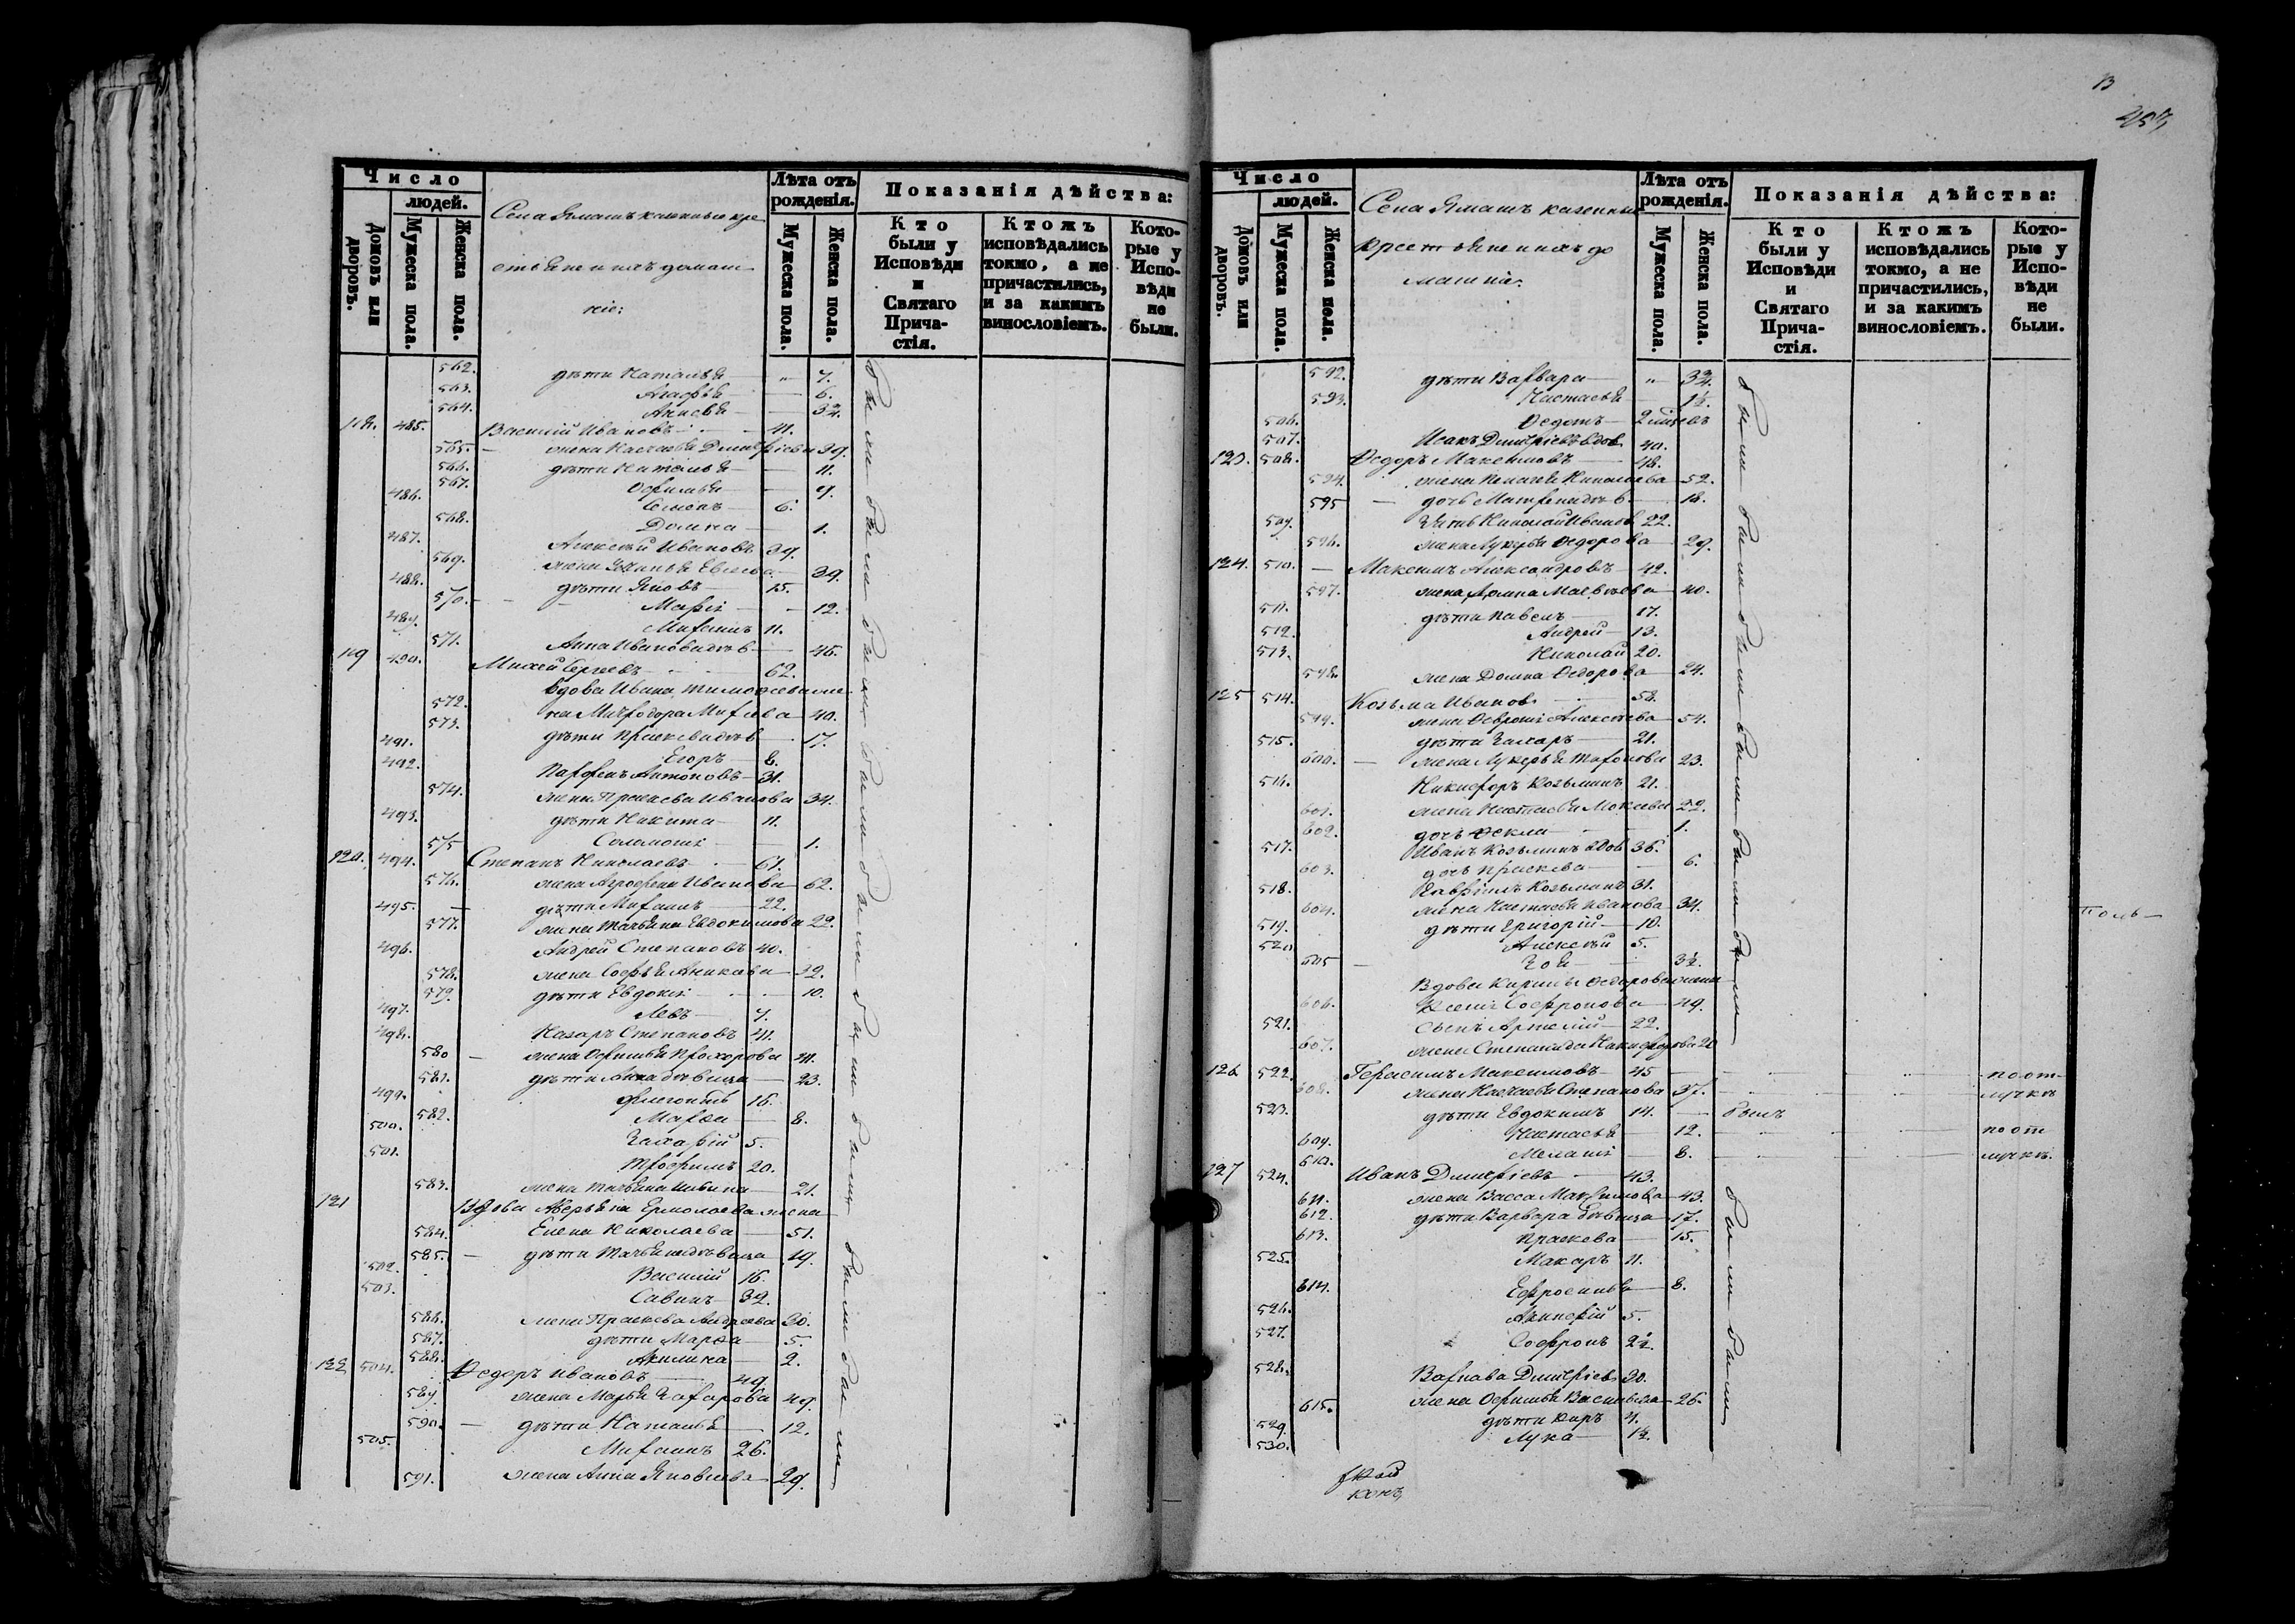 Число
людей.
Домовъ или дворовъ.
Мужеска пола.
Женска пола.
Села Ямашъ казенные кре
стьяне и ихъ домаш
ніе:
Лѣта отъ рожденія.
Мужеска пола.
Женска пола.
Показанія дѣйства:
Кто были у Исповѣди и Святаго Прича-стія.
Ктожъ исповѣдались токмо, а не причастились, и за какимъ винословіемъ.
Кото-рые у Испо-вѣди не были.
562. дѣти Наталья — " 7.
563. Агафья — 6.
564. — 3¾.
118. 485. Василій Ивановъ — 41.
565. жена Настасья Димитріева 39.
566. дѣти Наталья — 11.
567. Офимья — 9.
486. Семенъ — 6.
568. Домна — 1.
487. Алексѣй Ивановъ 39.
569. жена 39.
488. дѣти Яковъ — 15.
570. Марія — 12.
489. Михаилъ 11.
571. Анна Иванова дѣв — 46.
119 490. Михей Сергеевъ 62.
вдова Ивана Тимофеева же
572. на Митродора 40.
573. дѣти Прасковья дѣв 17.
491. Егоръ — 8.
492. Парфенъ Антоновъ — 31.
574. жена Праскева Иванова 34.
493. дѣти Никита — 11.
575 Соломонія — 1.
120. 494. Степанъ Николаевъ 61.
576. жена Агрофена Иванова 62.
495. дѣти Михаилъ — 22.
577. жена Татьяна Евдокимова 22.
496. Андрей Степановъ 40.
578. жена Софья Аникева — 32.
579. дѣти Евдокія — 10.
497. Левъ — 7.
498. Назаръ Степановъ 41.
580 — жена Офимья Прохорова 41.
581. дѣти Анна дѣвица — 23.
499. Флегонтъ 16.
582. Марфа — 8.
500. Захарій 5.
501. Трофимъ 20.
583. жена Татьяна Ильина — 21.
121 Вдова Аверьяна Ермолаева жена
584. Елена Николаева — 51.
585. — дѣти Татьяна дѣвица 19.
502. Василій 16.
503. Савинъ — 32.
586. жена Праскева Андреева 30.
587. дѣти Марфа — 5.
588. Акилина — 2.
122 504. Федоръ Ивановъ — 49.
589. жена Марья Захарова 49.
590. — дѣти Наталья — 12.
505. Михаилъ 26.
591. жена Анна Яковлева 29.
были были были были были были были были были
13
Число
людей.
Домовъ или дворовъ.
Мужеска пола.
Женска пола.
Села Ямашъ казенные
крестьяне и ихъ до
машніе.
Лѣта отъ рожденія.
Мужеска пола.
Женска пола.
Показанія дѣйства:
Кто были у Исповѣди и Святаго Прича-стія.
Ктожъ исповѣдались токмо, а не причастились, и за какимъ винословіемъ.
Кото-рые у Испо-вѣди не были.
592. дѣти Варвара — " 3¾.
593. Настасья — 1½.
506. Федотъ — 2
507. Исакъ Димитріевъ вдов 40.
123. 508. Федоръ Максимовъ — 48.
594. жена Пелагея Николаева — 52.
595 — дочь Матрена дѣв — 18.
509. Зять Николай Иванов 22.
596. жена Лукерья Федорова — 29.
124. 510. — Максимъ Александровъ — 42.
597. жена Домна Матвѣева — 40.
511. дѣти Павелъ — 17.
512. Андрей — 13.
513. Николай 20.
598. жена Домна Федорова 24.
125 514. Козьма Иванов 58.
599. жена Февронія Алексѣева — 54.
515. дѣти Захаръ — 21.
600. жена Лукерья 23.
516. Никифоръ Козьминъ 21.
601. жена Настасья Мокеева 22.
602. дочь Фекла — 1.
517. Иванъ Козьминъ вдов 36.
603. дочь Праскева — 6.
518. Гавріилъ Козьминъ 31.
604. жена Настасья Иванова 34.
519. дѣти Григорій — 10.
520 Алексѣй 5.
605 Зоя — 3½.
Вдова Карпа Федорова жена
606. Ксенія Софронова — 49.
521. Сынъ Артемій — 22.
607. жена Степанида Никифорова 20
126 522. Герасимъ Максимовъ — 45 — по от
608. жена Настасья Степанова 37. — лучкѣ
523. дѣти Евдокимъ 14. — былъ
609. Настасья — 12. — по от
610. Меланія — 8. — лучкѣ.
127 524. Иванъ Димитріевъ — 43.
611. жена Васса Максимова — 43.
612. дѣти Варвара дѣвица — 17.
613. Праскева — 15.
525. Макаръ 11.
614. Ефросинья — 8.
526. 5.
527. Софронъ 2½.
528. Варнава Димитріевъ 30.
615. жена Офимья Васильева — 26.
529. дѣти Киръ 4.
530. Лука — 1½.
были были были были были были
были были